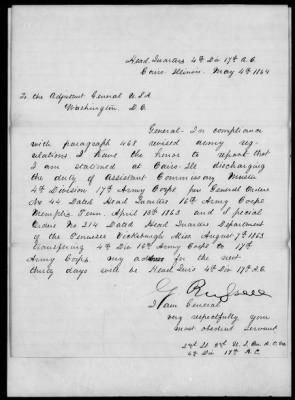 Head Quarters 4th Div 17th A.C.
Cairo Illinois. May 4th 1864
To the Adjutant General U.S.A
Washington D.C.
General - In compliance
with paragraph 468 revised army reg-
ulations I have the honor to report that
I am stationed at Cairo Ills discharging
the duty of Assistant Commissary Musters
4th Division 17th Army Corps per General Orders
No 44 Dated Head Quarters 16th Army Corps
Memphis Tenn. April 18th 1863 and Special
Orders No 214 Dated Head Quarters Department
of the Tennessee Vicksburgh Miss August 7th 1863
transfering 4th Div 16th Army Corps to 17th
Army Corps. my address for the next
thirty days will be Head Qurs 4th Div 17th A.C.
I am General
very respectfully your
most obedient servant
2nd Lt 3rd U.S.
4th Div 17th A.C.